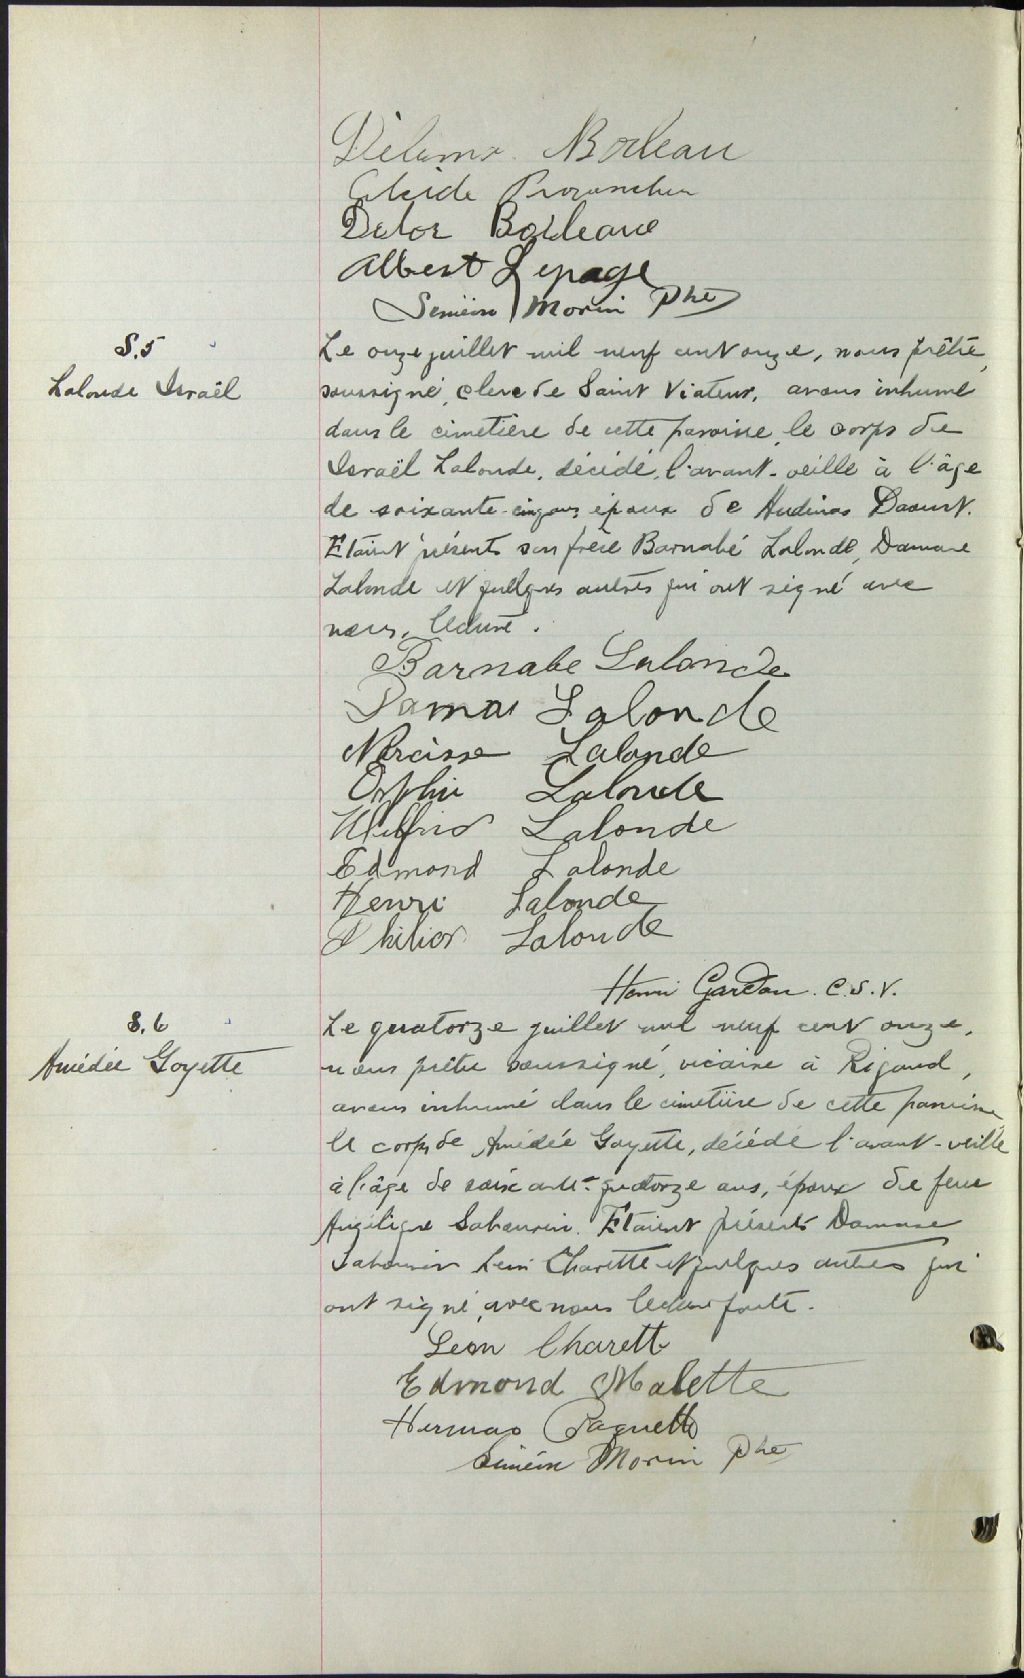 Boileau
Alcide Provencher
Delor Boileau
Albert Lepage
Siméon Morin Ptre
S. 5
Lalonde Israël
Le onze juillet mil neuf cent onze, nous prêtre
soussigné, clerc de Saint Viateur, avons inhumé
dans le cimetière de cette paroisse, le corps de
Israël Lalonde, décédé, l'avant-veille à l'âge
de soixante-cinq ans, époux de Daoust.
Etaient présents son frère Barnabé Lalonde, Damase
Lalonde et quelques autres qui ont signé avec
nous.
Barnabe Lalonde
Damas Lalonde
Narcisse Lalonde
Lalonde
Wilfrid Lalonde
Edmond Lalonde
Henri Lalonde
Lalonde
Henri C.S.V.
S. 6
Amédée Goyette
Le quatorze juillet mil neuf cent onze,
nous prêtre soussigné, vicaire à Rigaud,
avons inhumé dans le cimetière de cette paroisse
le corps de Amédée Goyette, décédé l'avant-veille
à l'âge de soixante-quatorze ans, époux de feue
Angélique Sabourin. Etaient présents Damase
Sabourin Léon Charette et quelques autres qui
ont signé avec nous lecture faite.
Leon Charette
Edmond Malette
Hermas Paquette
Siméon Morin Ptre